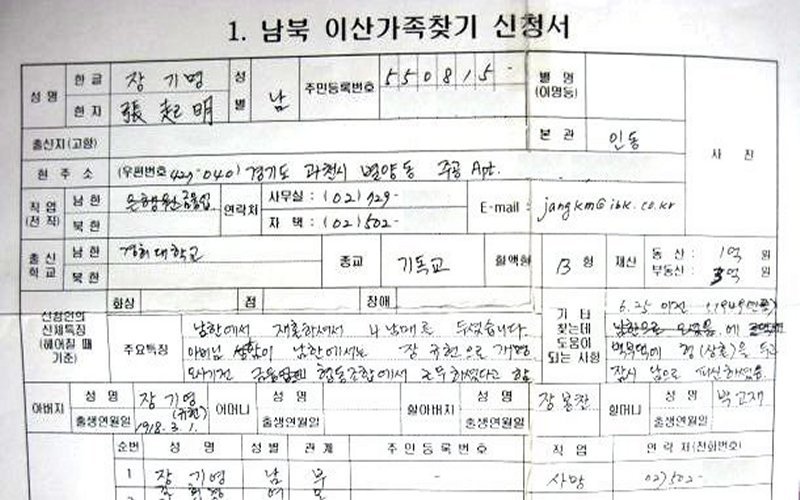 1. 남북 이산가족찾기 신청서
성명 한글 장기명 성별 남 주민등록번호 550815- 별명 (이명등)
한자 張起明
출신지(고향) 본관 인동 사진
현주소 (우편번호 427-040) 경기도 과천시 별양동 주공 Apt.
직업 (전직) 남한 은행원 금융업 연락처 사무실 : (02) 729- E-mail : jangkm@ibk.co.kr
북한 자택 : (02) 502-
출신학교 남한 경희대학교 종교 기독교 혈액형 B 형 재산 동산 : 1억 원
북한 부동산 : 3억 원
신청인의 신체특징 (헤어질 때 기준) 화상 점 장애 기타 찾는데 도움이 되는 사항 6.25 이전
주요특징 남한에서 재혼하셔서 4남매를 두셨습니다.
아버님 남한에서는 장규현으로 개명
협동조합에서 근무하셨다고 함 잠시 남으로 피신하셨음
아버지 성명 장기영 어머니 성명 할아버지 성명 장용찬 할머니 성명 박고재
출생연월일 1918. 3. 1. 출생연월일 출생연월일 출생연월일
순번 성명 성별 관계 주민등록번호 직업 연락처(전화번호)
1 장기영 남 부 - 사망 02)502-